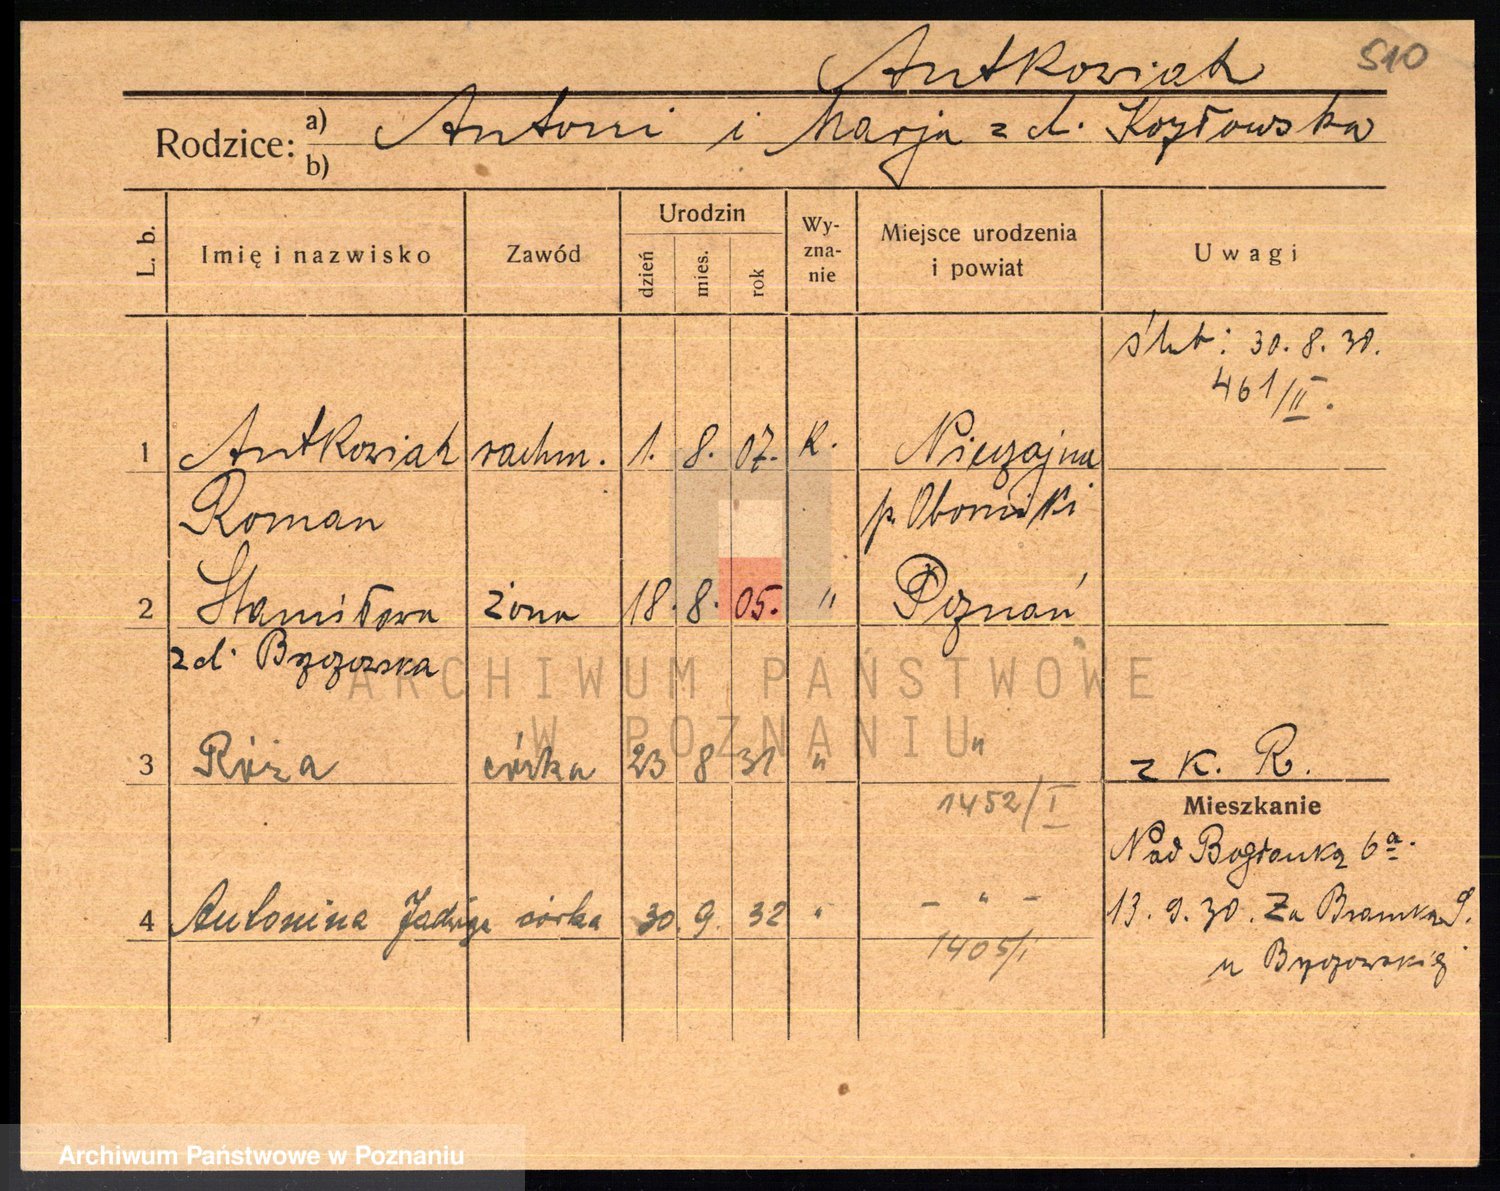 510
Antkowiak
Rodzice: a) b) Antoni i Marja z d. Kozłowska
L. b. Imię i nazwisko Zawód Urodzin dzień mies. rok Wy-zna-nie Miejsce urodzenia i powiat Uwagi
ślub: 30. 8. 30.
461/II.
1 Antkowiak rachm. 1. 8. 07. k. Nieczajna
Roman p. Oborniki
2 Stanisława żona 18. 8. 05. " Poznań
z d. Byczowska
3 Róża córka 23 8 31 " " z k. R.
1452/I
Mieszkanie
Nad Bogdanką 6a.
4 Antonina Jadwiga córka 30. 9. 32 " - " - 13. 9. 30. Za Bramką 9.
1405/I
u Byczowskiej
ARCHIWUM PAŃSTWOWE
W POZNANIU
Archiwum Państwowe w Poznaniu